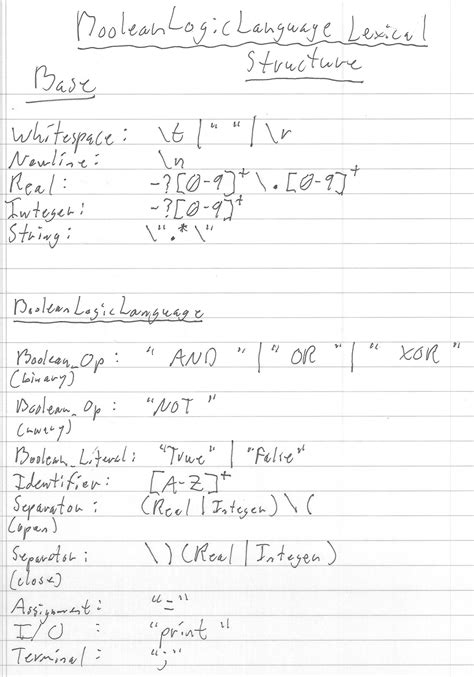 BooleanLogicLanguage Lexical
Structure
Base
Whitespace: \t | " " | \r
Newline: \n
Real: -?[0-9]+ \. [0-9]+
Integer: -?[0-9]+
String: \".*\"
BooleanLogicLanguage
Boolean_Op: " AND " | " OR " | " XOR "
(binary)
Boolean_Op: "NOT "
(unary)
Boolean_Literal: "True" | "False"
Identifier: [A-Z]+
Separator: (Real | Integer) \(
(open)
Separator: \) (Real | Integer)
(close)
Assignment: "="
I/O : "print "
Terminal: ";"